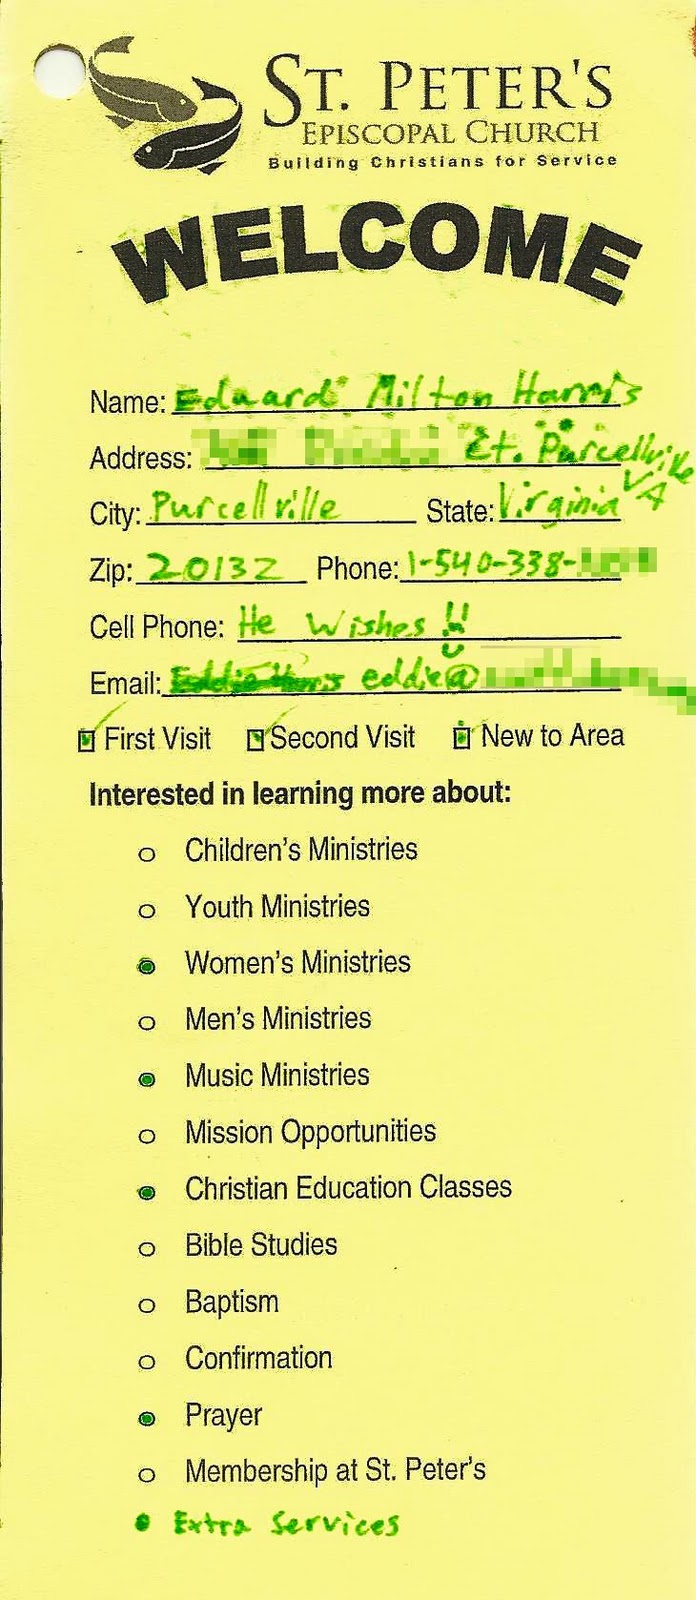 ST. PETER'S
EPISCOPAL CHURCH
Building Christians for Service
WELCOME
Name: Eduard Milton Harris
Address: Ct. Purcellville
VA
City: Purcellville State: Virginia
Zip: 20132 Phone: 1-540-338-
Cell Phone: He Wishes !!
Email: eddie@
First Visit Second Visit New to Area
Interested in learning more about:
Children's Ministries
Youth Ministries
Women's Ministries
Men's Ministries
Music Ministries
Mission Opportunities
Christian Education Classes
Bible Studies
Baptism
Confirmation
Prayer
Membership at St. Peter's
Extra Services